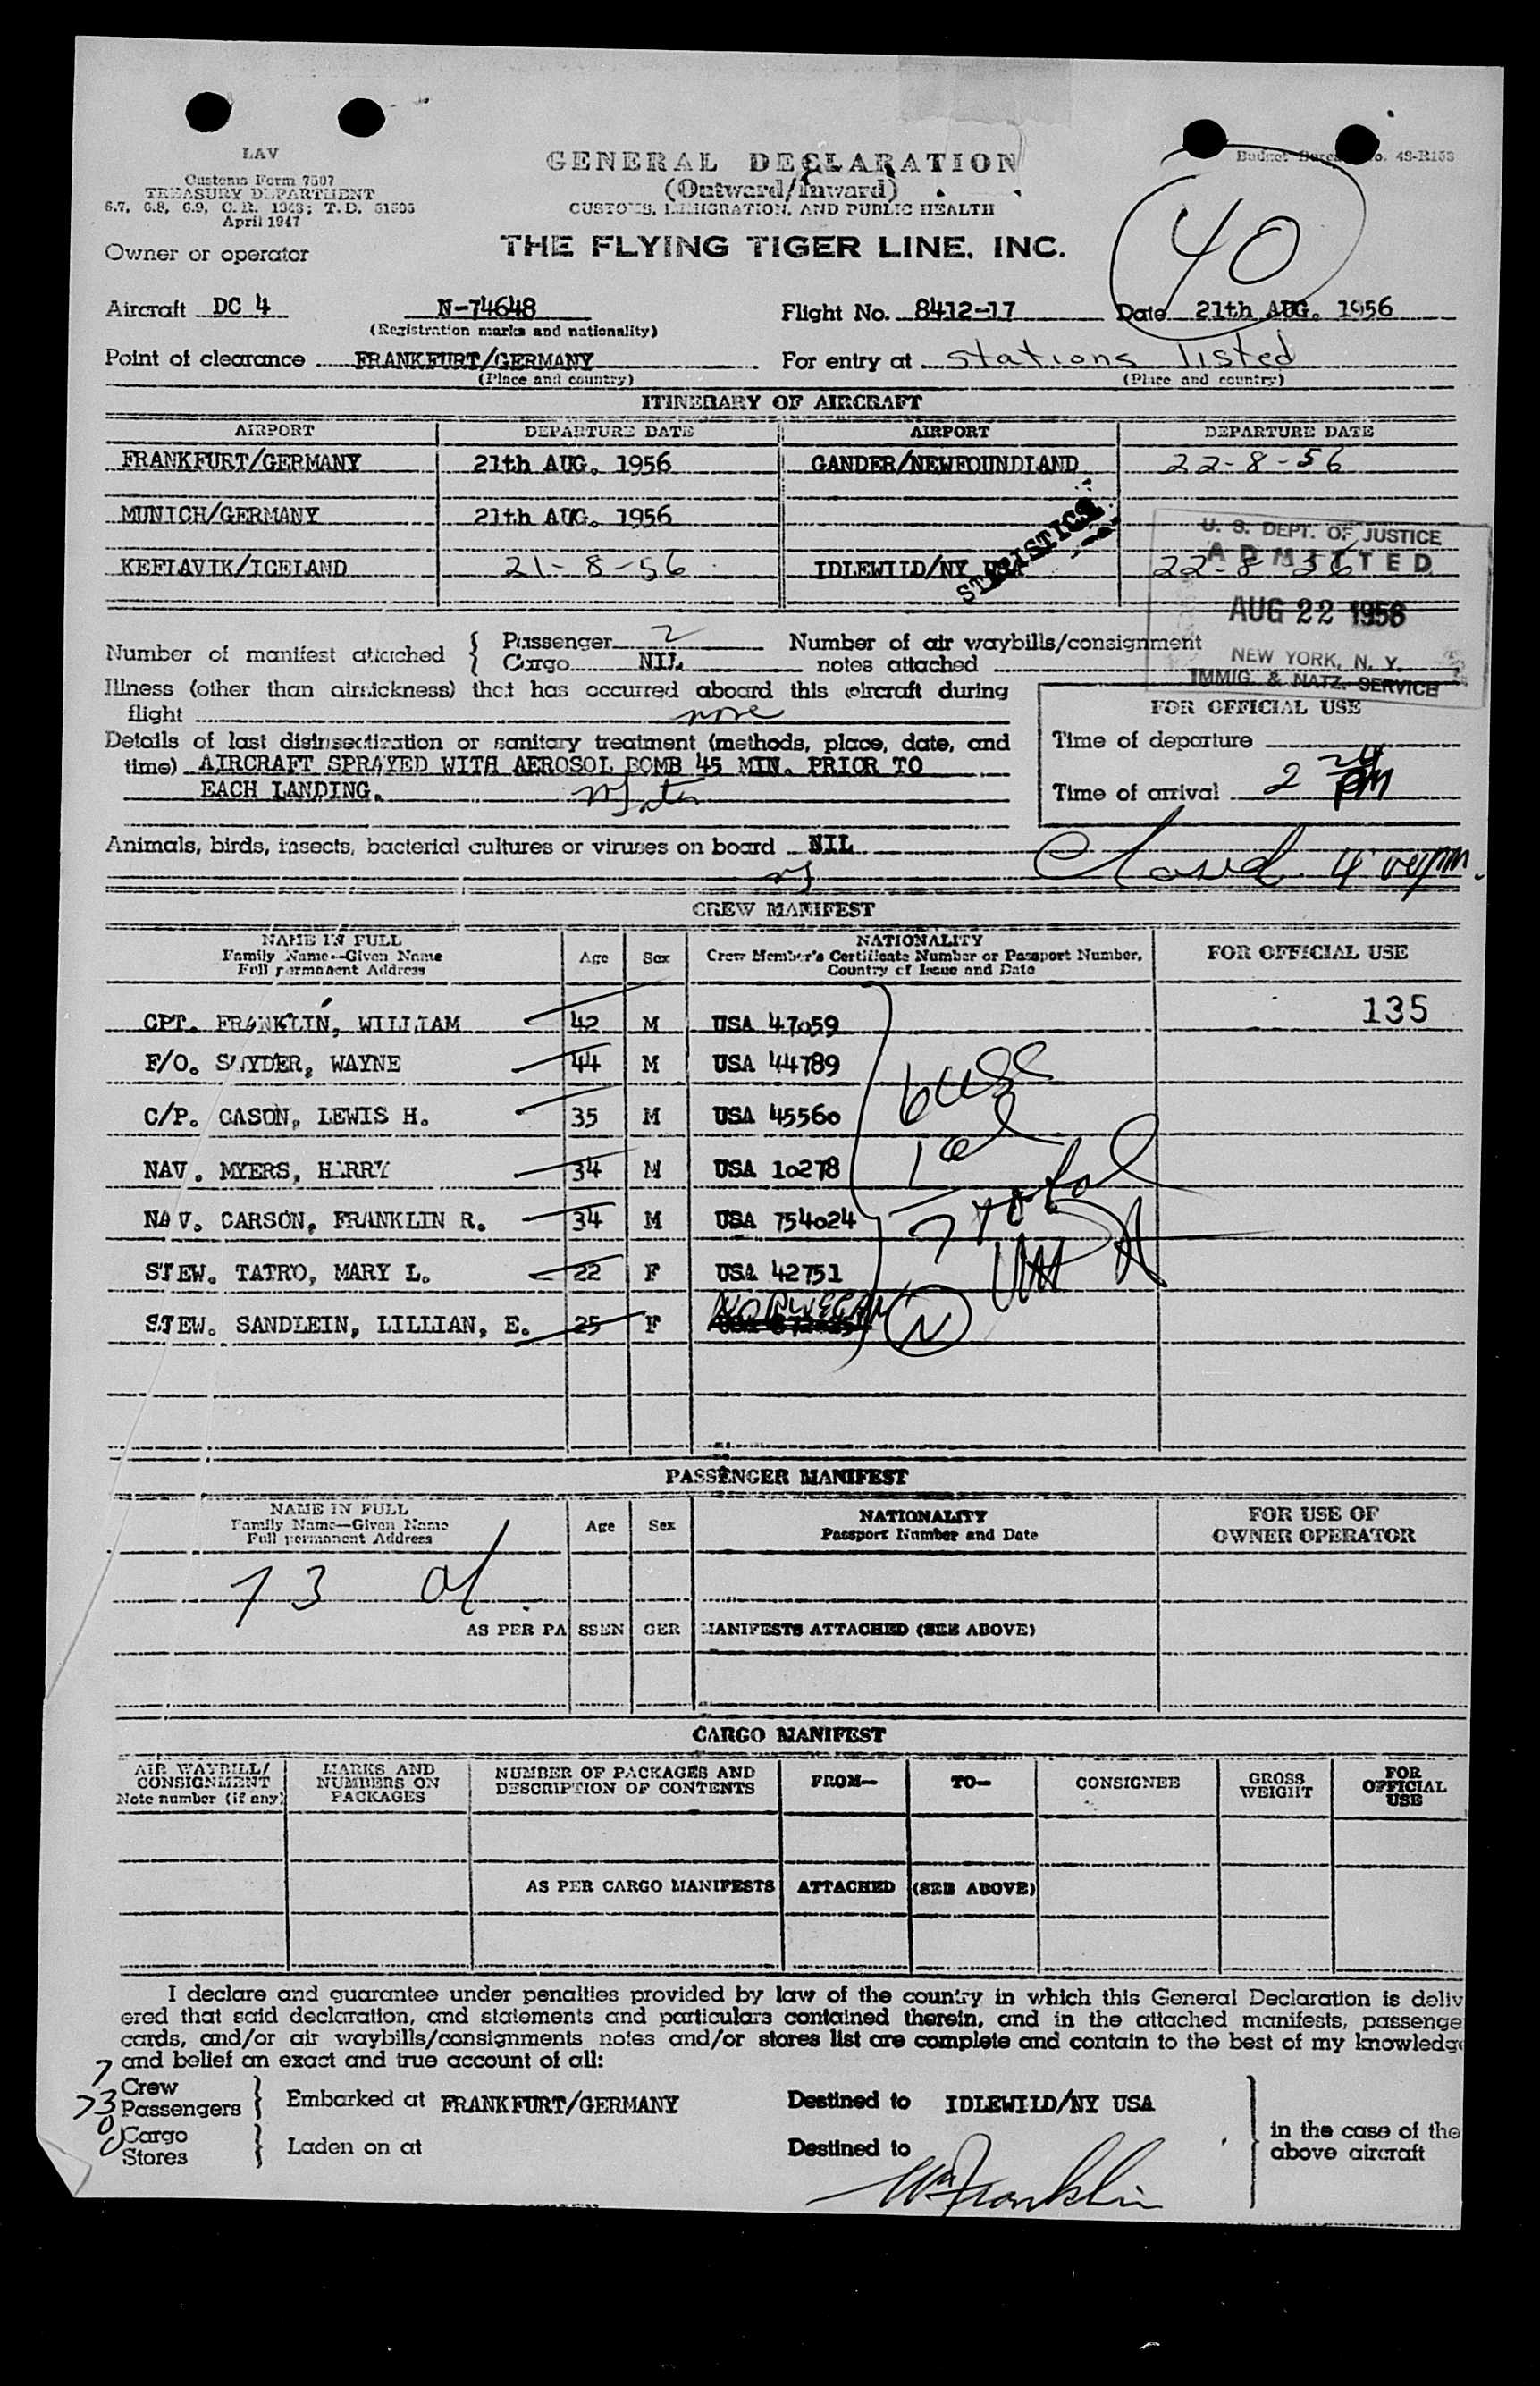 LAV
Customs Form 7507
TREASURY DEPARTMENT
6.7, 6.8, 6.9, C.R. 1943; T.D. 51595
April 1947
GENERAL DECLARATION
(Outward/Inward)
CUSTOMS, IMMIGRATION, AND PUBLIC HEALTH
Budget Bureau No. 48-R153
40
Owner or operator THE FLYING TIGER LINE, INC.
Aircraft DC 4 N-74648 Flight No. 8412-17 Date 21th AUG. 1956
(Registration marks and nationality)
Point of clearance FRANKFURT/GERMANY For entry at stations listed
(Place and country) (Place and country)
ITINERARY OF AIRCRAFT
AIRPORT DEPARTURE DATE AIRPORT DEPARTURE DATE
FRANKFURT/GERMANY 21th AUG. 1956 GANDER/NEWFOUNDLAND 22-8-56
MUNICH/GERMANY 21th AUG. 1956
KEFLAVIK/ICELAND 21-8-56 IDLEWILD/NY USA 22-8-56
STATISTICS
U. S. DEPT. OF JUSTICE
ADMITTED
AUG 22 1956
NEW YORK, N. Y.
IMMIG. & NATZ. SERVICE
Number of manifest attached { Passenger 2 Number of air waybills/consignment
Cargo NIL notes attached
Illness (other than airsickness) that has occurred aboard this aircraft during
flight none
FOR OFFICIAL USE
Details of last disinsectization or sanitary treatment (methods, place, date, and
time) AIRCRAFT SPRAYED WITH AEROSOL BOMB 45 MIN. PRIOR TO
EACH LANDING.
Time of departure
Time of arrival 2 24 PM
Animals, birds, insects, bacterial cultures or viruses on board NIL
Closed 4 00 pm.
CREW MANIFEST
NAME IN FULL
Family Name--Given Name
Full permanent Address
Age Sex
NATIONALITY
Crew Member's Certificate Number or Passport Number,
Country of Issue and Date
FOR OFFICIAL USE
135
CPT. FRANKLIN, WILLIAM 42 M USA 47059
F/O. SNYDER, WAYNE 44 M USA 44789
C/P. CASON, LEWIS H. 35 M USA 45560
NAV. MYERS, HARRY 34 M USA 10278
NAV. CARSON, FRANKLIN R. 34 M USA 754024
STEW. TATRO, MARY L. 22 F USA 42751
STEW. SANDLEIN, LILLIAN, E. 25 F NORWEGAN
6 USC
1 al
7 total
N
PASSENGER MANIFEST
NAME IN FULL
Family Name—Given Name
Full permanent Address
Age Sex
NATIONALITY
Passport Number and Date
FOR USE OF
OWNER OPERATOR
73
AS PER PASSENGER MANIFESTS ATTACHED (SEE ABOVE)
CARGO MANIFEST
AIR WAYBILL/
CONSIGNMENT
Note number (if any)
MARKS AND
NUMBERS ON
PACKAGES
NUMBER OF PACKAGES AND
DESCRIPTION OF CONTENTS
FROM— TO— CONSIGNEE
GROSS
WEIGHT
FOR
OFFICIAL
USE
AS PER CARGO MANIFESTS ATTACHED (SEE ABOVE)
I declare and guarantee under penalties provided by law of the country in which this General Declaration is deliv
ered that said declaration, and statements and particulars contained therein, and in the attached manifests, passenge
cards, and/or air waybills/consignments notes and/or stores list are complete and contain to the best of my knowledge
and belief an exact and true account of all:
7 Crew
73 Passengers } Embarked at FRANKFURT/GERMANY Destined to IDLEWILD/NY USA
0 Cargo
0 Stores } Laden on at Destined to
in the case of the
above aircraft
Wm Franklin